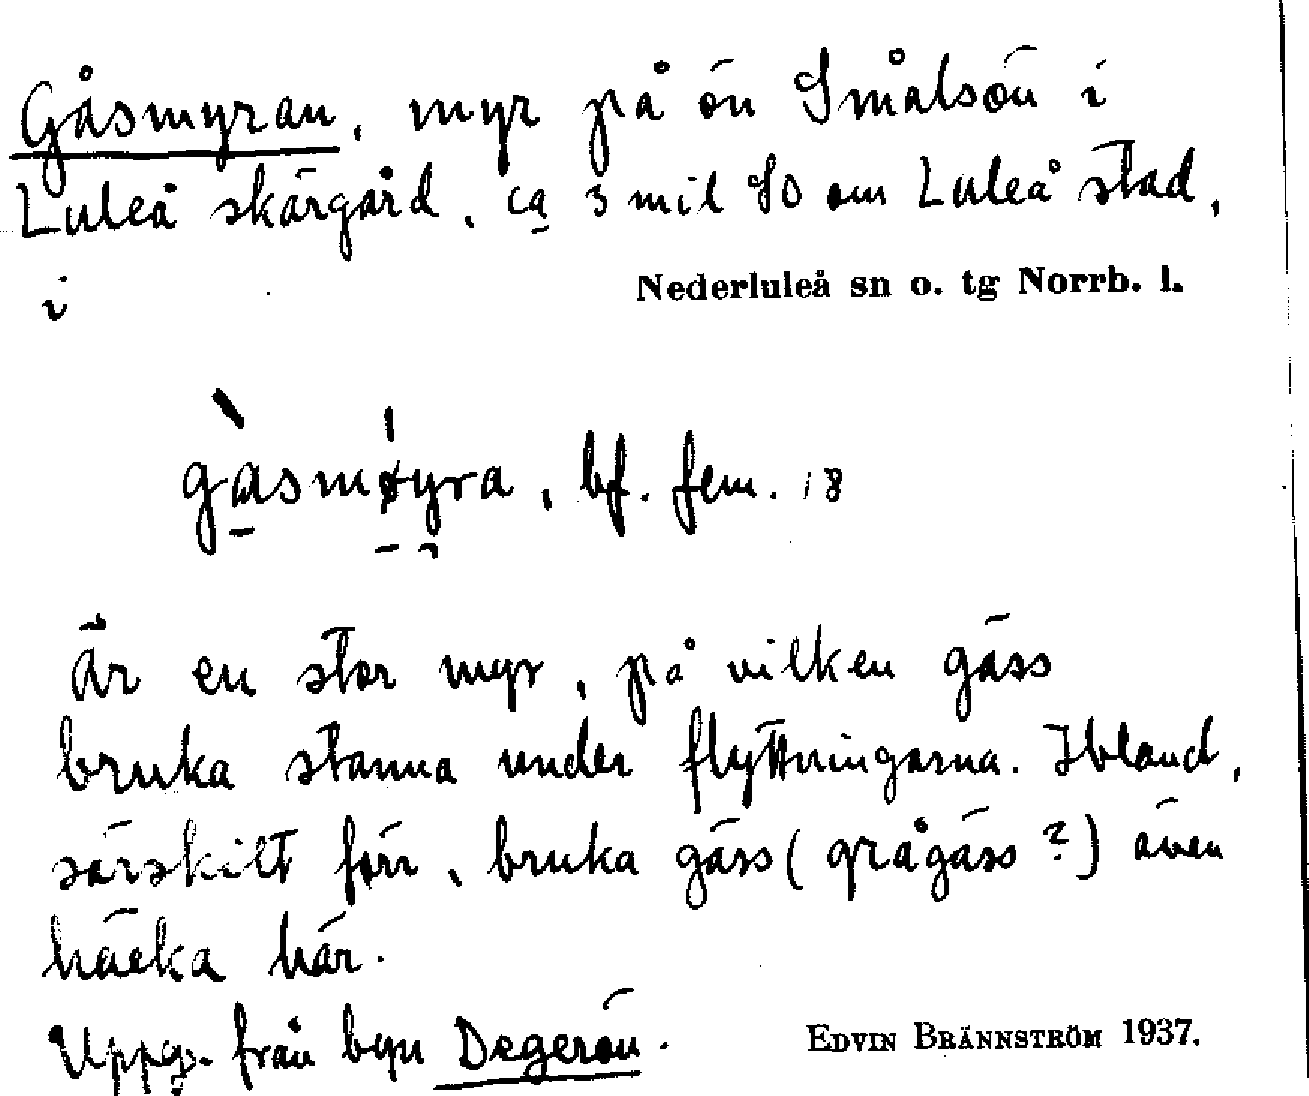 Gåsmyran, myr på ön Småtsön i
Luleå skärgård, ca 3 mil SO om Luleå stad,
i Nederluleå sn o. tg Norrb. l.
gàsmøyra, bf. fem.
Är en stor myr, på vilken gäss
bruka stanna under flyttningarna. Ibland,
särskilt förr, bruka gäss (grågäss?) även
häcka här.
Uppg. från byn Degerön. EDVIN BRÄNNSTRÖM 1937.